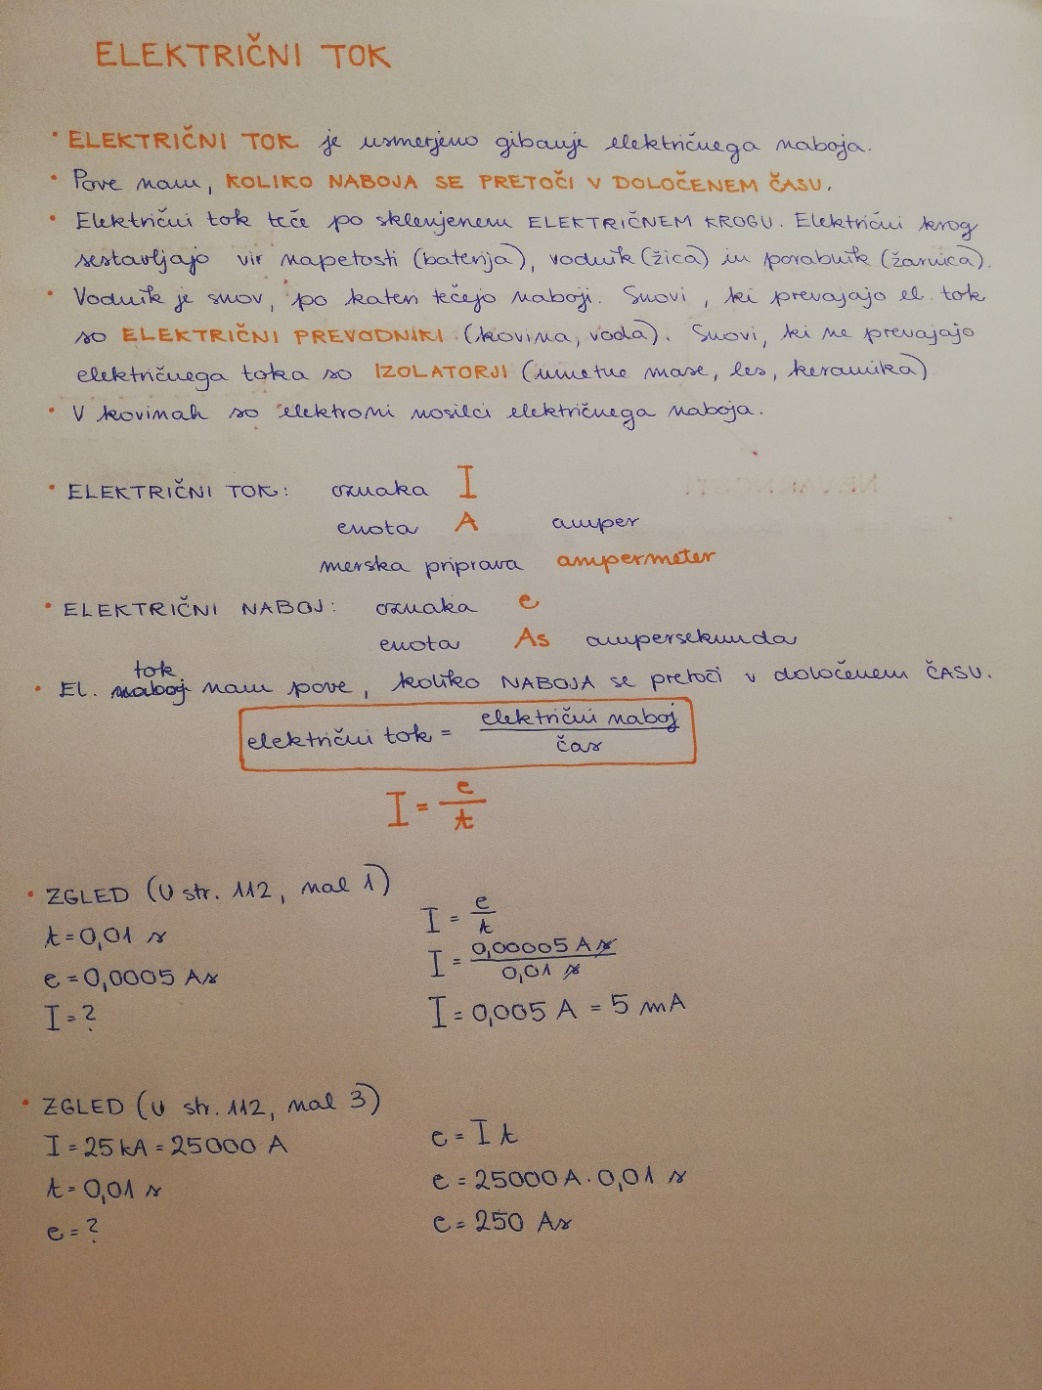 ELEKTRIČNI TOK
• ELEKTRIČNI TOK je usmerjeno gibanje električnega naboja.
• Pove nam, KOLIKO NABOJA SE PRETOČI V DOLOČENEM ČASU.
• Električni tok teče po sklenjenem ELEKTRIČNEM KROGU. Električni krog
sestavljajo vir napetosti (baterija), vodnik (žica) in porabnik (žarnica).
• Vodnik je snov, po kateri tečejo naboji. Snovi, ki prevajajo el. tok
so ELEKTRIČNI PREVODNIKI (kovina, voda). Snovi, ki ne prevajajo
električnega toka so IZOLATORJI (umetne mase, les, keramika)
• V kovinah so elektroni nosilci električnega naboja.
• ELEKTRIČNI TOK: oznaka I
enota A amper
merska priprava ampermeter
• ELEKTRIČNI NABOJ: oznaka e
enota As ampersekunda
tok
• El. naboj nam pove, koliko NABOJA se pretoči v določenem ČASU.
električni tok = električni naboj / čas
I = e / t
• ZGLED (U str. 112, nal 1)
t = 0,01 s
e = 0,0005 As
I = ?
I = e / t
I = 0,00005 As / 0,01 s
I = 0,005 A = 5 mA
• ZGLED (U str. 112, nal 3)
I = 25 kA = 25000 A
t = 0,01 s
e = ?
e = I t
e = 25000 A · 0,01 s
e = 250 As